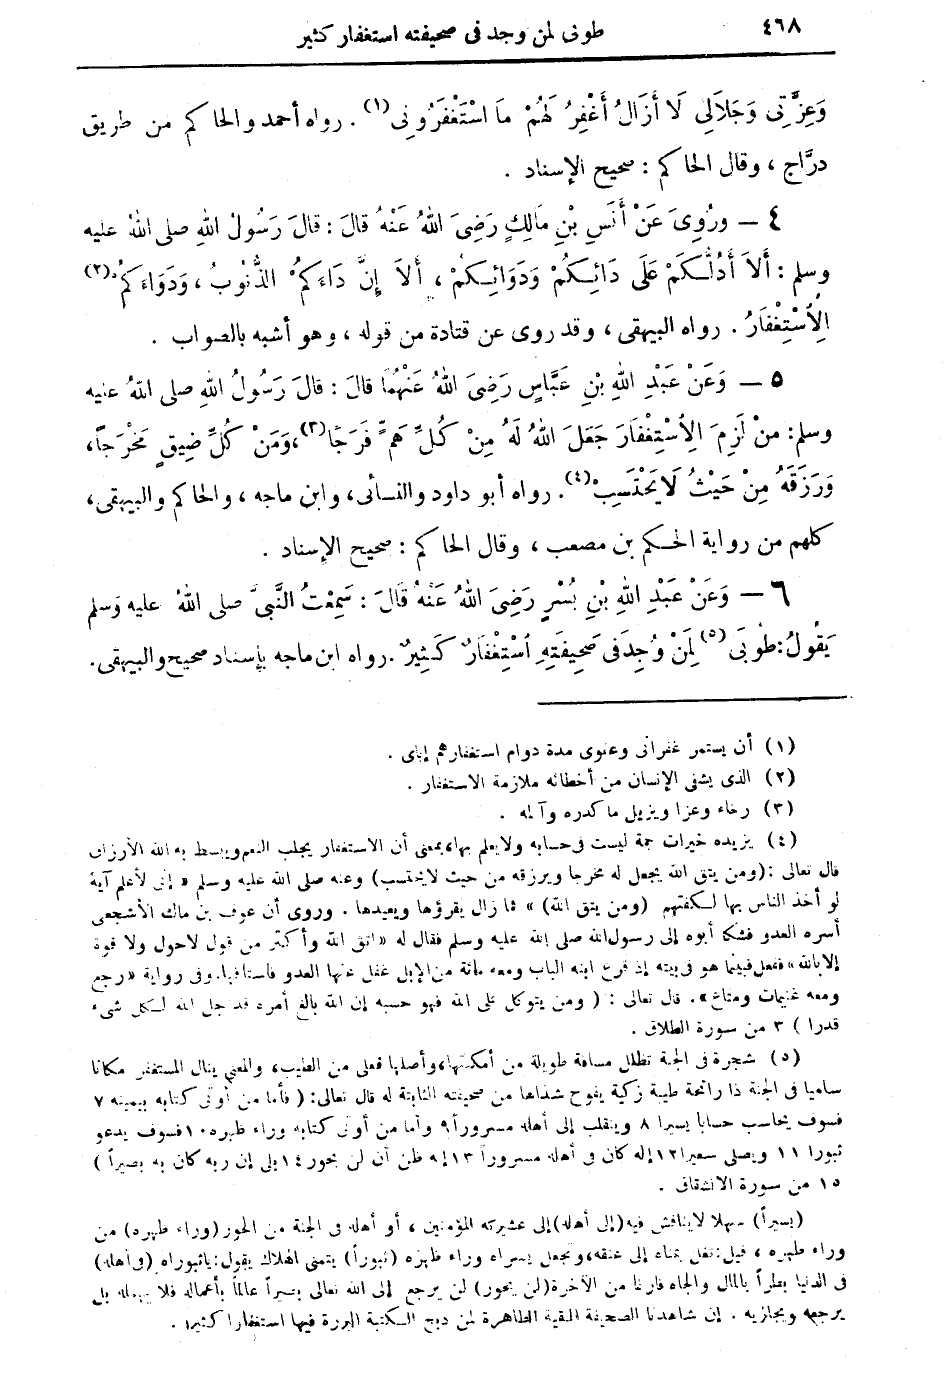 ٤٦٨
طوبى لمن وجد فى صحيفته استغفار كثير
وَعِزَّتِى وَجَلَالِى لَا أَزَالُ أَغْفِرُ لَهُمْ مَا اسْتَغْفَرُونِى (١) . رواه أحمد والحاكم من طريق
درَّاج ، وقال الحاكم : صحيح الإسناد .
٤ — ورُوِىَ عَنْ أَنَسِ بْنِ مَالِكٍ رَضِىَ اللهُ عَنْهُ قالَ : قالَ رَسُولُ اللهِ صلى اللهُ عليه
وسلم : أَلَا أَدُلُّكُمْ عَلَى دَائِكُمْ وَدَوَائِكُمْ ، أَلَا إِنَّ دَاءَكُمُ الذُّنُوبُ ، وَدَوَاءَكُمُ (٢)
الِاُسْتِغْفَارُ . رواه البيهقى ، وقد روى عن قتادة من قوله ، وهو أشبه بالصواب .
٥ — وَعَنْ عَبْدِ اللهِ بْنِ عَبَّاسٍ رَضِىَ اللهُ عَنْهُمَا قالَ : قالَ رَسُولُ اللهِ صلى اللهُ عليه
وسلم : مَنْ لَزِمَ الِاسْتِغْفَارَ جَعَلَ اللهُ لَهُ مِنْ كُلِّ هَمٍّ فَرَجًا (٣) ، وَمَنْ كُلِّ ضِيقٍ مَخْرَجاً ،
وَرَزَقَهُ مِنْ حَيْثُ لَا يَحْتَسِبْ (٤) . رواه أبو داود والنسائى ، وابن ماجه ، والحاكم والبيهقى ،
كلهم من رواية الحكم بن مصعب ، وقال الحاكم : صحيح الإسناد .
٦ — وَعَنْ عَبْدِ اللهِ بْنِ بُسْرٍ رَضِىَ اللهُ عَنْهُ قَالَ : سَمِعْتُ النَّبِىَّ صلى اللهُ عليه وسلم
يَقُولُ : طُوبَى (٥) لِمَنْ وُجِدَ فى صَحِيفَتِهِ اُسْتِغْفَارٌ كَثِيرٌ . رواه ابن ماجه بإسناد صحيح والبيهقى .
(١) أن يستمر غفرانى وعفوى مدة دوام استغفارهم إياى .
(٢) الذى يشفى الإنسان من أخطائه ملازمة الاستغفار .
(٣) رخاء وعزا ويزيل ما كدره وآلمه .
(٤) يزيده خيرات جمة ليست فى حسابه ولا يعلم بها ، بمعنى أن الاستغفار يجلب النعم ويبسط به الله الأرزاق
قال تعالى : (ومن يتق الله يجعل له مخرجا ويرزقه من حيث لا يحتسب) وعنه صلى الله عليه وسلم « إنى لأعلم آية
لو أخذ الناس بها لكفتهم (ومن يتق الله) » فما زال يقرؤها ويعيدها . وروى أن عوف بن مالك الأشجعى
أسره العدو فشكا أبوه إلى رسول الله صلى الله عليه وسلم فقال له « اتق الله وأكثر من قول لاحول ولا قوة
إلا بالله » ففعل فبينما هو فى بيته إذ قرع ابنه الباب ومعه مائة من الإبل غفل عنها العدو فاستاقها . وفى رواية « رجع
ومعه غنيمات ومتاع » . قال تعالى : ( ومن يتوكل على الله فهو حسبه إن الله بالغ أمره قد جعل الله لكل شىء
قدرا ) ٣ من سورة الطلاق .
(٥) شجرة فى الجنة تظلل مسافة طويلة من أمكنتها ، وأصلها فعلى من الطيب ، والمعنى ينال المستغفر مكانا
ساميا فى الجنة ذا رائحة طيبة زكية يفوح شذاها من صحيفته الثابتة له قال تعالى : ( فأما من أوتى كتابه بيمينه ٧
فسوف يحاسب حسابا يسيرا ٨ وينقلب إلى أهله مسرورا ٩ وأما من أوتى كتابه وراء ظهره ١٠ فسوف يدعو
ثبورا ١١ ويصلى سعيرا ١٢ إنه كان فى أهله مسروراً ١٣ إنه ظن أن لن يحور ١٤ بلى إن ربه كان به بصيراً )
١٥ من سورة الانشقاق .
(يسيراً) سهلا لا يناقش فيه (إلى أهله) إلى عشيرته المؤمنين ، أو أهله فى الجنة من الحور (وراء ظهره) من
وراء ظهره ، قيل : تغل يمناه إلى عنقه ، وتجعل يسراه وراء ظهره (ثبوراً) يتمنى الهلاك يقول : ياثبوراه (فى أهله)
فى الدنيا بطراً بالمال والجاه فارغا من الآخرة (لن يحور) لن يرجع إلى الله تعالى بصيراً عالماً بأعماله فلا يهمله بل
يرجعه ويجازيه . إن شاهدنا الصحيفة النقية الطاهرة لمن دبج الكتبة البررة فيها استغفارا كثيرا .